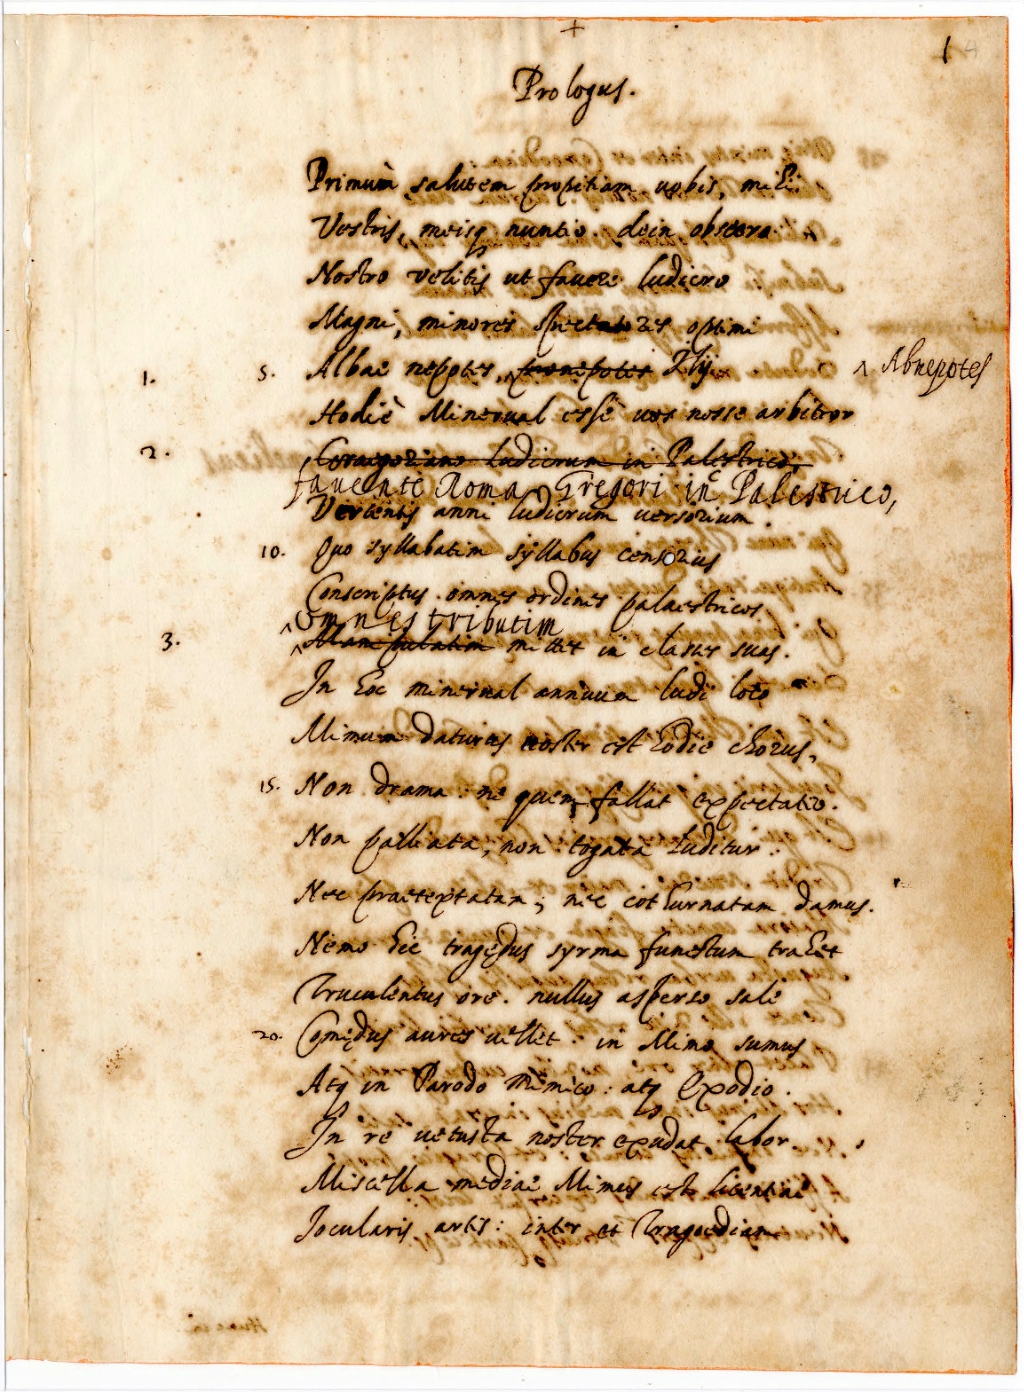 +
1
Prologus.
Primùm salutem propitiam vobis, mihi
Vestris, meisq nuntio. dein obsecro
Nostro velitis ut favere ludicro
Magni, minores spectatores optimi
1. 5. Albae nepotes, ^ pronepotes Ilij ^ Abnepotes
Hodiè Minerval esse vos nosse arbitror
2. ludicrum in Palestrico,
favente Roma Gregori in Palestrico,
Vertentis anni ludicrum versorium.
10. Quo syllabatim syllabus censorius
Conscriptus omnes ordines palaestricos
^ Omnes tributim
3. ^ mittet in classes suas.
In hoc minerval annuum ludi loco
Mimum daturus noster est hodie chorus,
15. Non drama: ne quem fallat expectatio.
Non palliata, non togata luditur.
Nec praetextatam, nec cothurnatam damus.
Nemo hic tragędus syrma funestum trahet
Truculentus ore. nullus asperso sale
20. Comędus aures vellet. in Mimo sumus
Atq in Parodo mimico: atq Exodio.
In re vetusta noster exudat labor.
Miscella mediae Mimus est licentiae
Jocularis artis: inter et Tragoediam